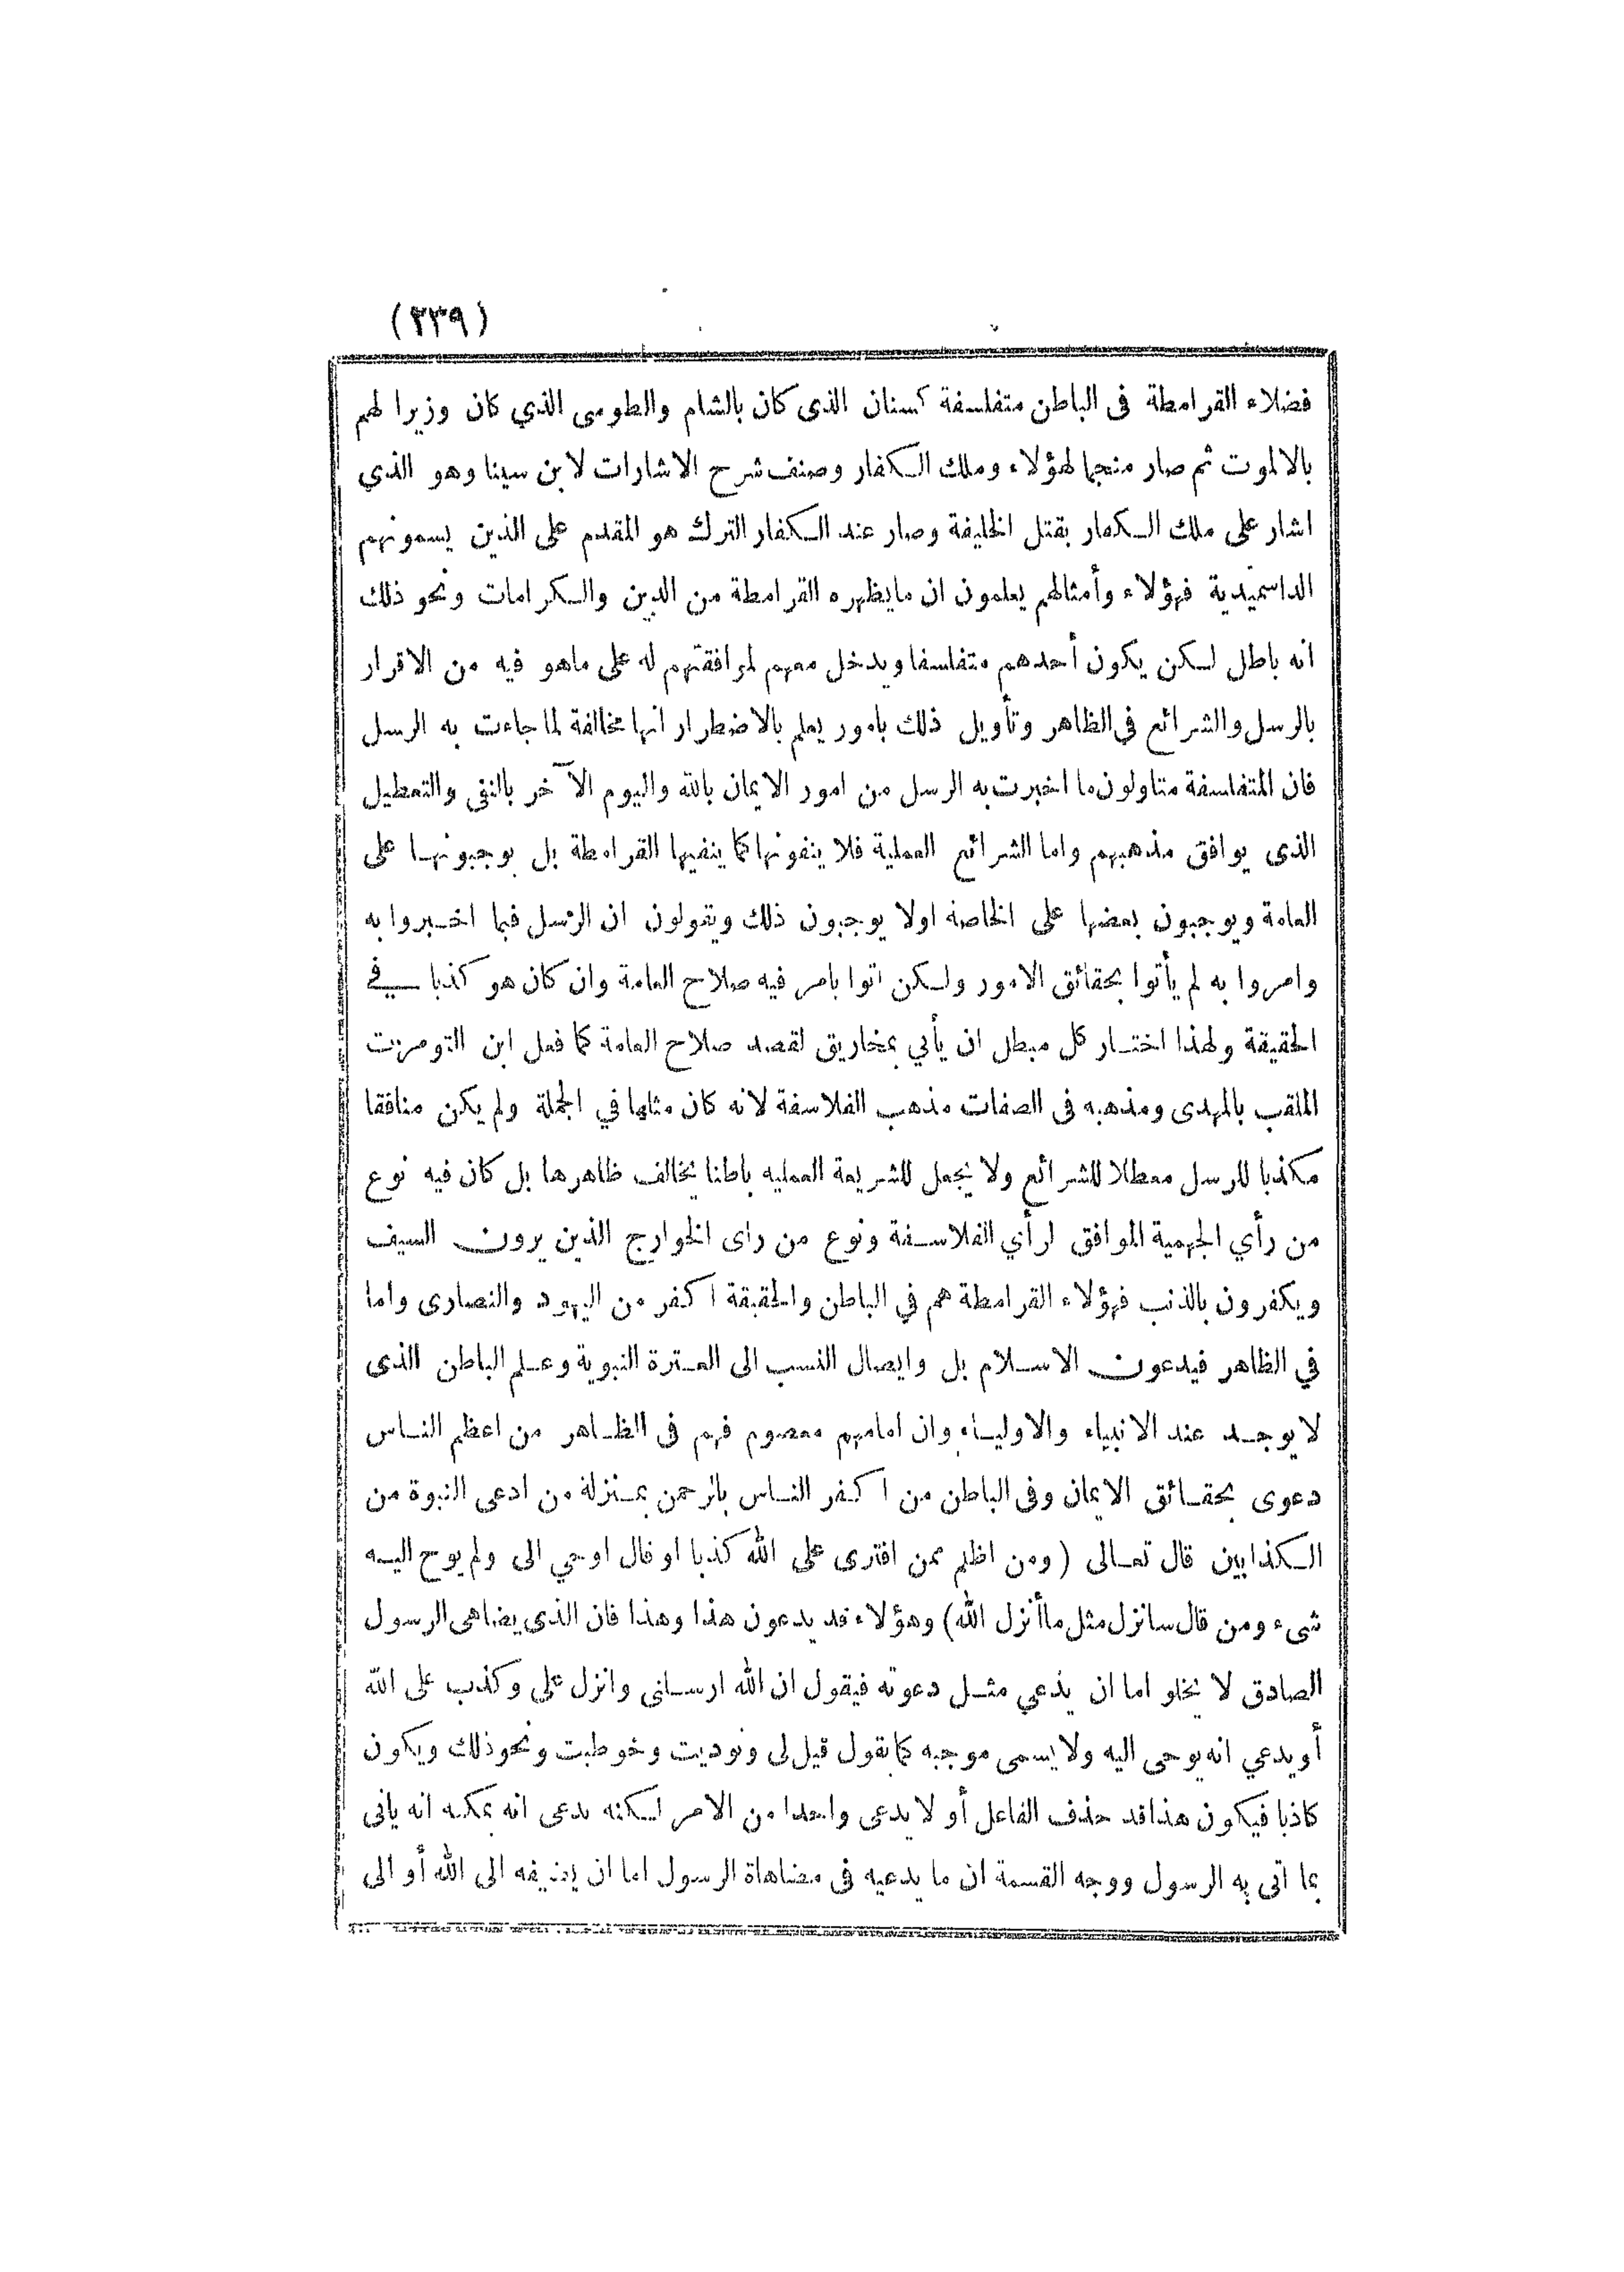 (٣٣٩)
فضلاء القرامطة فى الباطن متفلسفة كسنان الذى كان بالشام والطوسى الذي كان وزيرا لهم
بالالموت ثم صار منجما لهؤلاء وملك الكفار وصنف شرح الاشارات لابن سينا وهو الذي
اشار على ملك الكفار بقتل الخليفة وصار عند الكفار الترك هو المقدم على الذين يسمونهم
الداسميدية فهؤلاء وأمثالهم يعلمون ان مايظهره القرامطة من الدين والكرامات ونحو ذلك
انه باطل لكن يكون أحدهم متفلسفا ويدخل معهم لموافقتهم له على ماهو فيه من الاقرار
بالرسل والشرائع في الظاهر وتأويل ذلك بامور يعلم بالاضطرار انها مخالفة لما جاءت به الرسل
فان المتفلسفة متاولون ما اخبرت به الرسل من امور الايمان بالله واليوم الآخر بالنفي والتعطيل
الذى يوافق مذهبهم واما الشرائع العملية فلا ينفونها كما ينفيها القرامطة بل يوجبونها على
العامة ويوجبون بعضها على الخاصة اولا يوجبون ذلك ويقولون ان الرسل فيما اخبروا به
وامروا به لم يأتوا بحقائق الامور ولكن اتوا بامر فيه صلاح العامة وان كان هو كذبا في
الحقيقة ولهذا اختار كل مبطل ان يأتي بمخاريق لقصد صلاح العامة كما فعل ابن التومرت
الملقب بالمهدى ومذهبه فى الصفات مذهب الفلاسفة لانه كان مثلها في الجملة ولم يكن منافقا
مكذبا للرسل معطلا للشرائع ولا يجعل للشريعة العمليه باطنا يخالف ظاهرها بل كان فيه نوع
من رأي الجهمية الموافق لرأي الفلاسفة ونوع من راى الخوارج الذين يرون السيف
ويكفرون بالذنب فهؤلاء القرامطة هم في الباطن والحقيقة اكفر من اليهود والنصارى واما
في الظاهر فيدعون الاسلام بل وايصال النسب الى العترة النبوية وعلم الباطن الذى
لا يوجد عند الانبياء والاولياء وان امامهم معصوم فهم فى الظاهر من اعظم الناس
دعوى بحقائق الايمان وفى الباطن من اكفر الناس بالرحمن بمنزلة من ادعى النبوة من
الكذابين قال تعالى (ومن اظلم ممن افترى على الله كذبا او قال اوحي الى ولم يوح اليه
شىء ومن قال سانزل مثل ماأنزل الله) وهؤلاء قد يدعون هذا وهذا فان الذى يضاهى الرسول
الصادق لا يخلو اما ان يدعي مثل دعوته فيقول ان الله ارسلنى وانزل علي وكذب على الله
أو يدعي انه يوحى اليه ولا يسمى موجبه كما يقول قيل لى ونوديت وخوطبت ونحو ذلك ويكون
كاذبا فيكون هذا قد حذف الفاعل أو لا يدعى واحدا من الامر لكنه يدعى انه يمكنه انه ياتى
بما اتى به الرسول ووجه القسمة ان ما يدعيه فى مضاهاة الرسول اما ان يضيفه الى الله أو الى